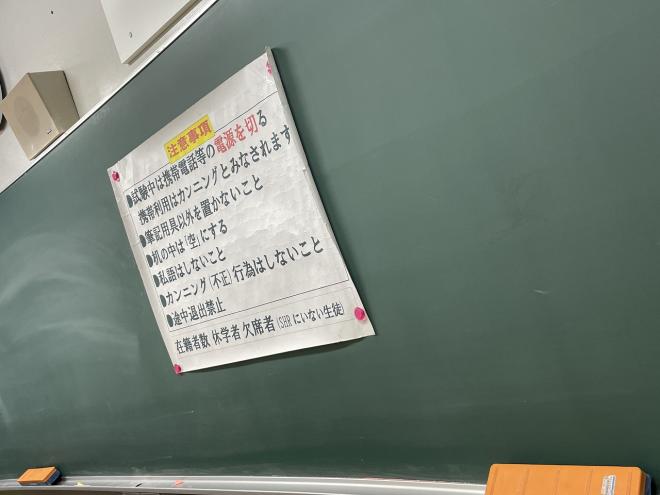 注意事項
●試験中は携帯電話等の電源を切る
携帯利用はカンニングとみなされます
●筆記用具以外を置かないこと
●机の中は「空」にする
●私語はしないこと
●カンニング(不正)行為はしないこと
●途中退出禁止
在籍者数 休学者 欠席者(SHRにいない生徒)